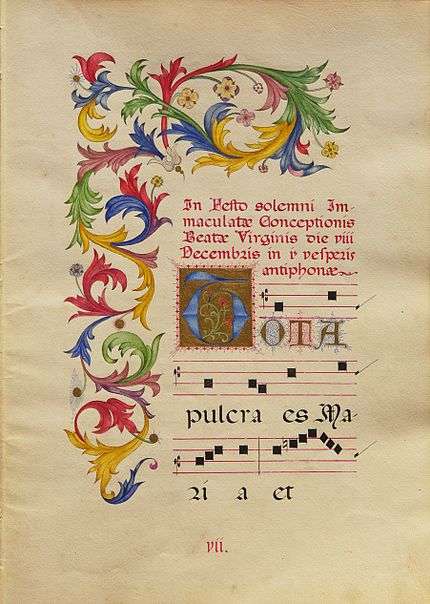 In Festo solemni Im-
maculatæ Conceptionis
Beatæ Virginis die viii
Decembris in v vesperis
antiphonæ
TOTA
pulcra es Ma
ri a et
vii.